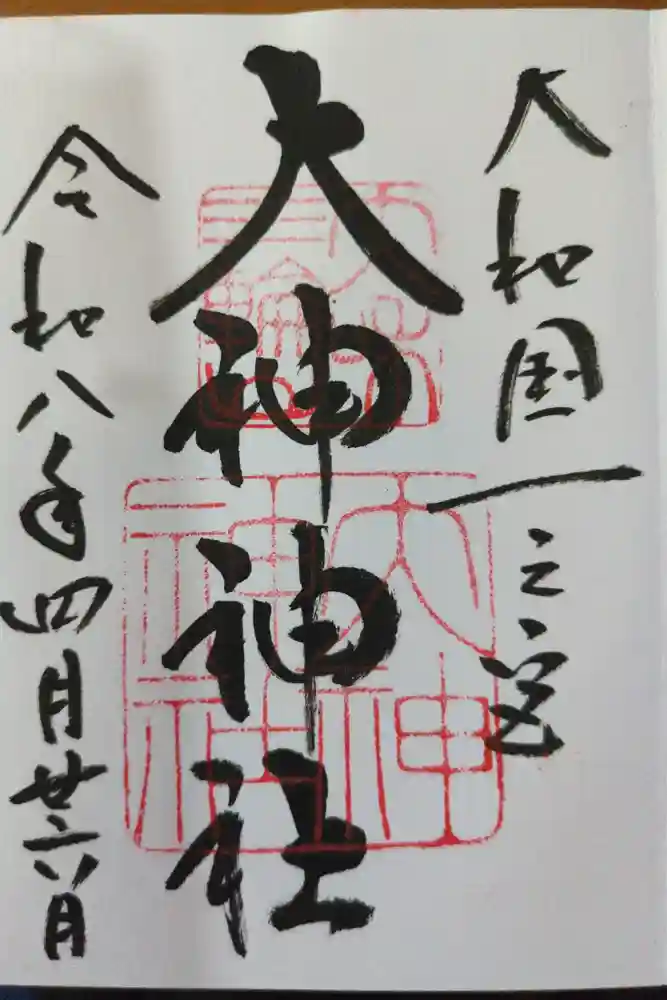 大和国一之宮
大神神社
令和八年四月廿六日
大神
神社